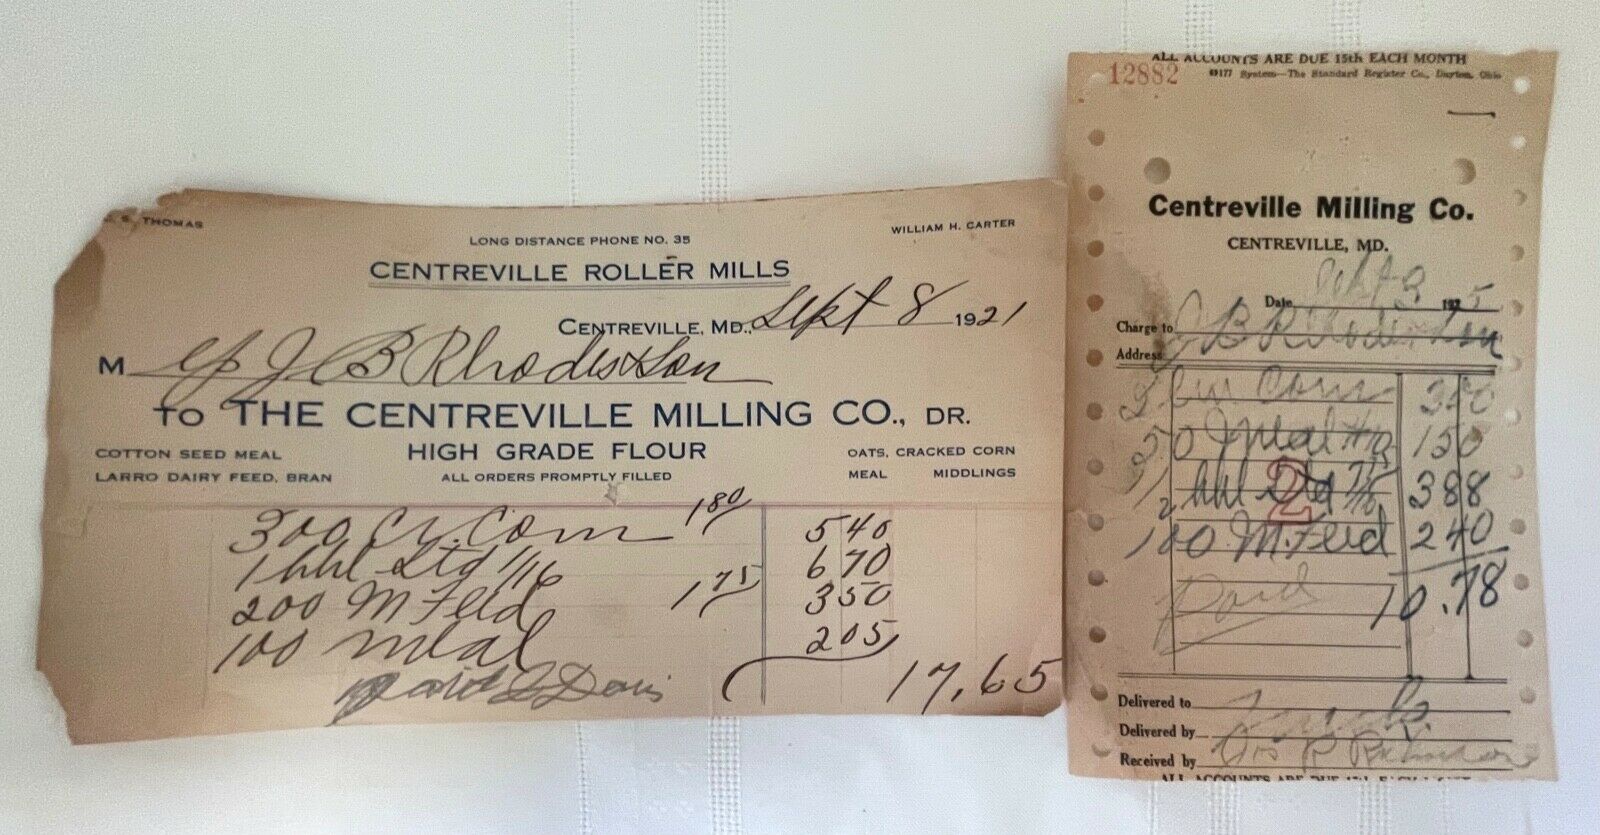 THOMAS
WILLIAM H. CARTER
LONG DISTANCE PHONE NO. 35
CENTREVILLE ROLLER MILLS
CENTREVILLE, MD., Sept 8 1921
M J B Rhodes & Son
TO THE CENTREVILLE MILLING CO., DR.
COTTON SEED MEAL
HIGH GRADE FLOUR
OATS, CRACKED CORN
LARRO DAIRY FEED, BRAN
ALL ORDERS PROMPTLY FILLED
MEAL MIDDLINGS
300 Cr. Corn 180 5 40
1 bbl Std 1/16 6 70
200 M Feed 175 3 50
100 Meal 2 05
Paid Davis 17,65
ALL ACCOUNTS ARE DUE 15th EACH MONTH
12882
System—The Standard Register Co., Dayton, Ohio
Centreville Milling Co.
CENTREVILLE, MD.
Date 1925
Charge to J B Rhodes & Son
Address
Corn 350
50 Meal 150
2
1/2 bbl Std 388
100 M. Feed 240
Paid 10.78
Delivered to
Delivered by
Received by
ALL ACCOUNTS ARE DUE 15th EACH MONTH